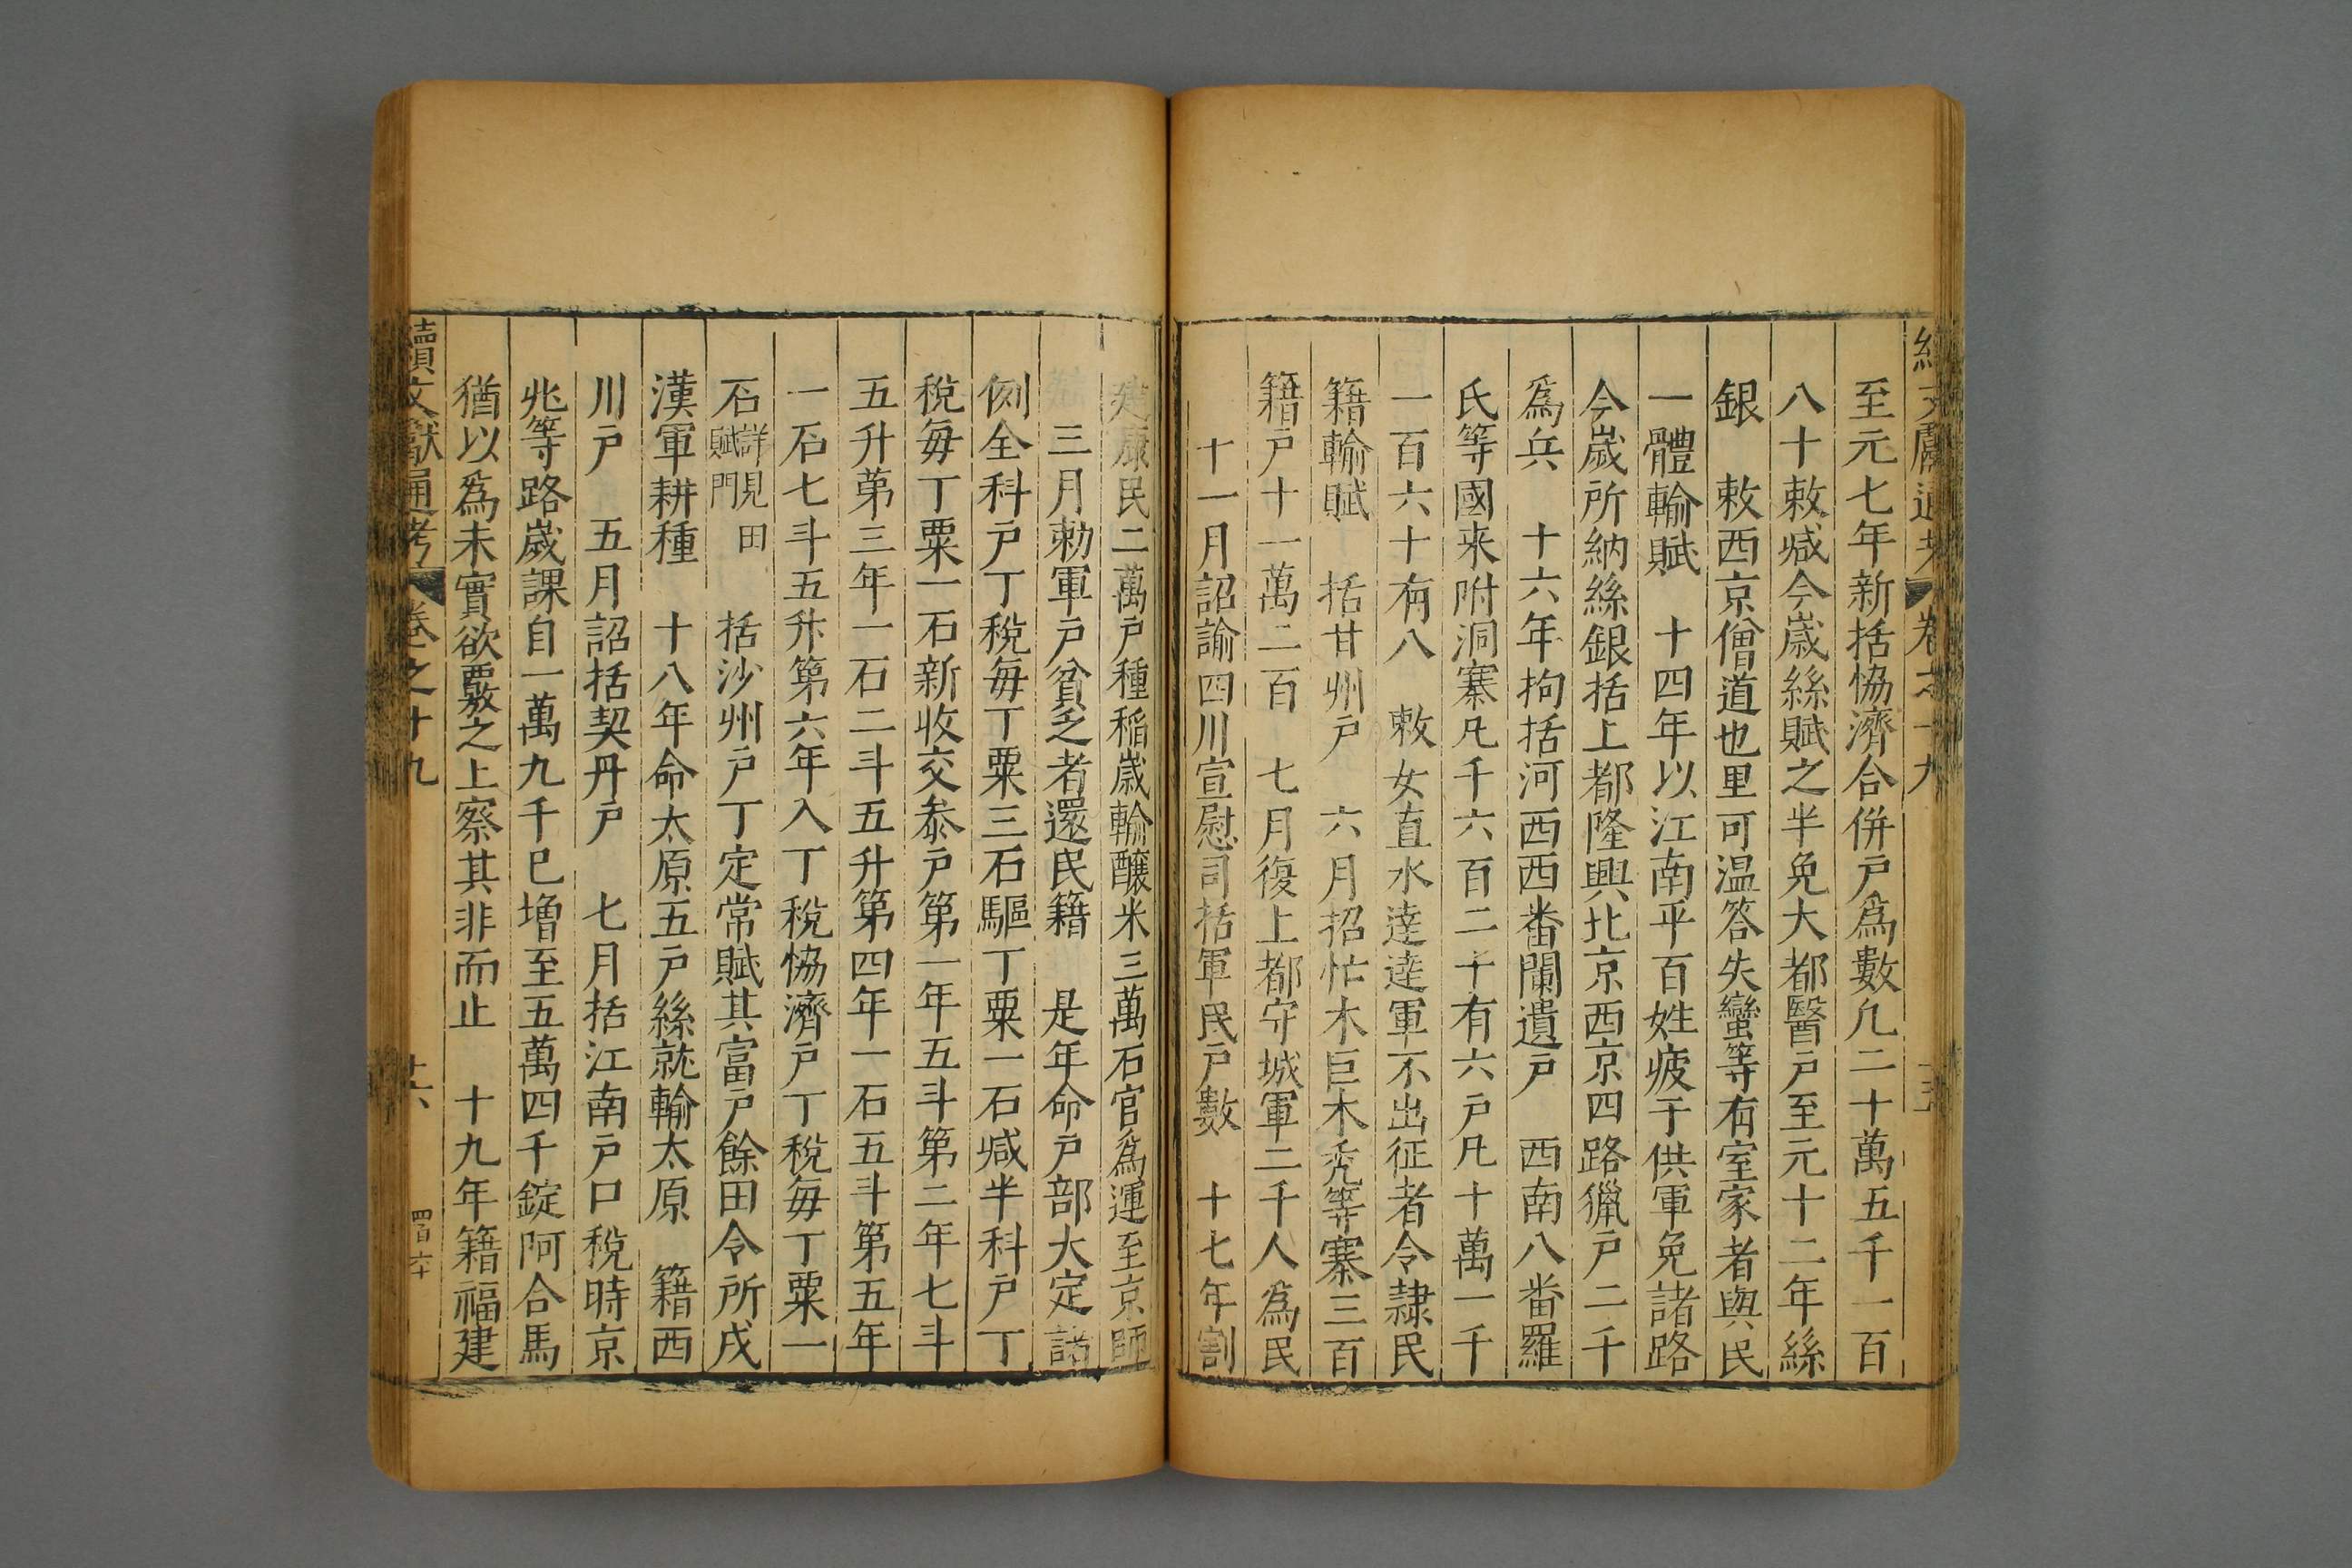 續文獻通考 卷之十九
至元七年新括協濟合併戶爲數凢二十萬五千一百
八十敕减今歲絲賦之半免大都醫戶至元十二年絲
銀 敕西京僧道也里可温答失蠻等有室家者與民
一體輸賦 十四年以江南平百姓疲于供軍免諸路
今歲所納絲銀括上都隆興北京西京四路獵戶二千
爲兵 十六年拘括河西西番闌遺戶 西南八番羅
氏等國来附洞寨凢千六百二十有六戶凢十萬一千
一百六十有八 敕女直水達達軍不出征者令隷民
籍輸賦 括甘州戶 六月招忙木巨木秃等寨三百
籍戶十一萬二百 七月復上都守城軍二千人爲民
十一月詔諭四川宣慰司括軍民戶數 十七年割
建康民二萬戶種稲歲輸釀米三萬石官爲運至京師
三月勑軍戶貧乏者還民籍 是年命戶部大定諸
例全科戶丁稅每丁粟三石驅丁粟一石减半科戶丁
稅每丁粟一石新收交叅戶第一年五斗第二年七斗
五升第三年一石二斗五升第四年一石五斗第五年
一石七斗五升第六年入丁稅協濟戶丁稅每丁粟一
石詳見田賦門 括沙州戶丁定常賦其富戶餘田令所戍
漢軍耕種 十八年命太原五戶絲就輸太原 籍西
川戶 五月詔括契丹戶 七月括江南戶口稅時京
兆等路歲課自一萬九千已增至五萬四千錠阿合馬
猶以爲未實欲覈之上察其非而止 十九年籍福建
續文獻通考 卷之十九 十六 四百六十